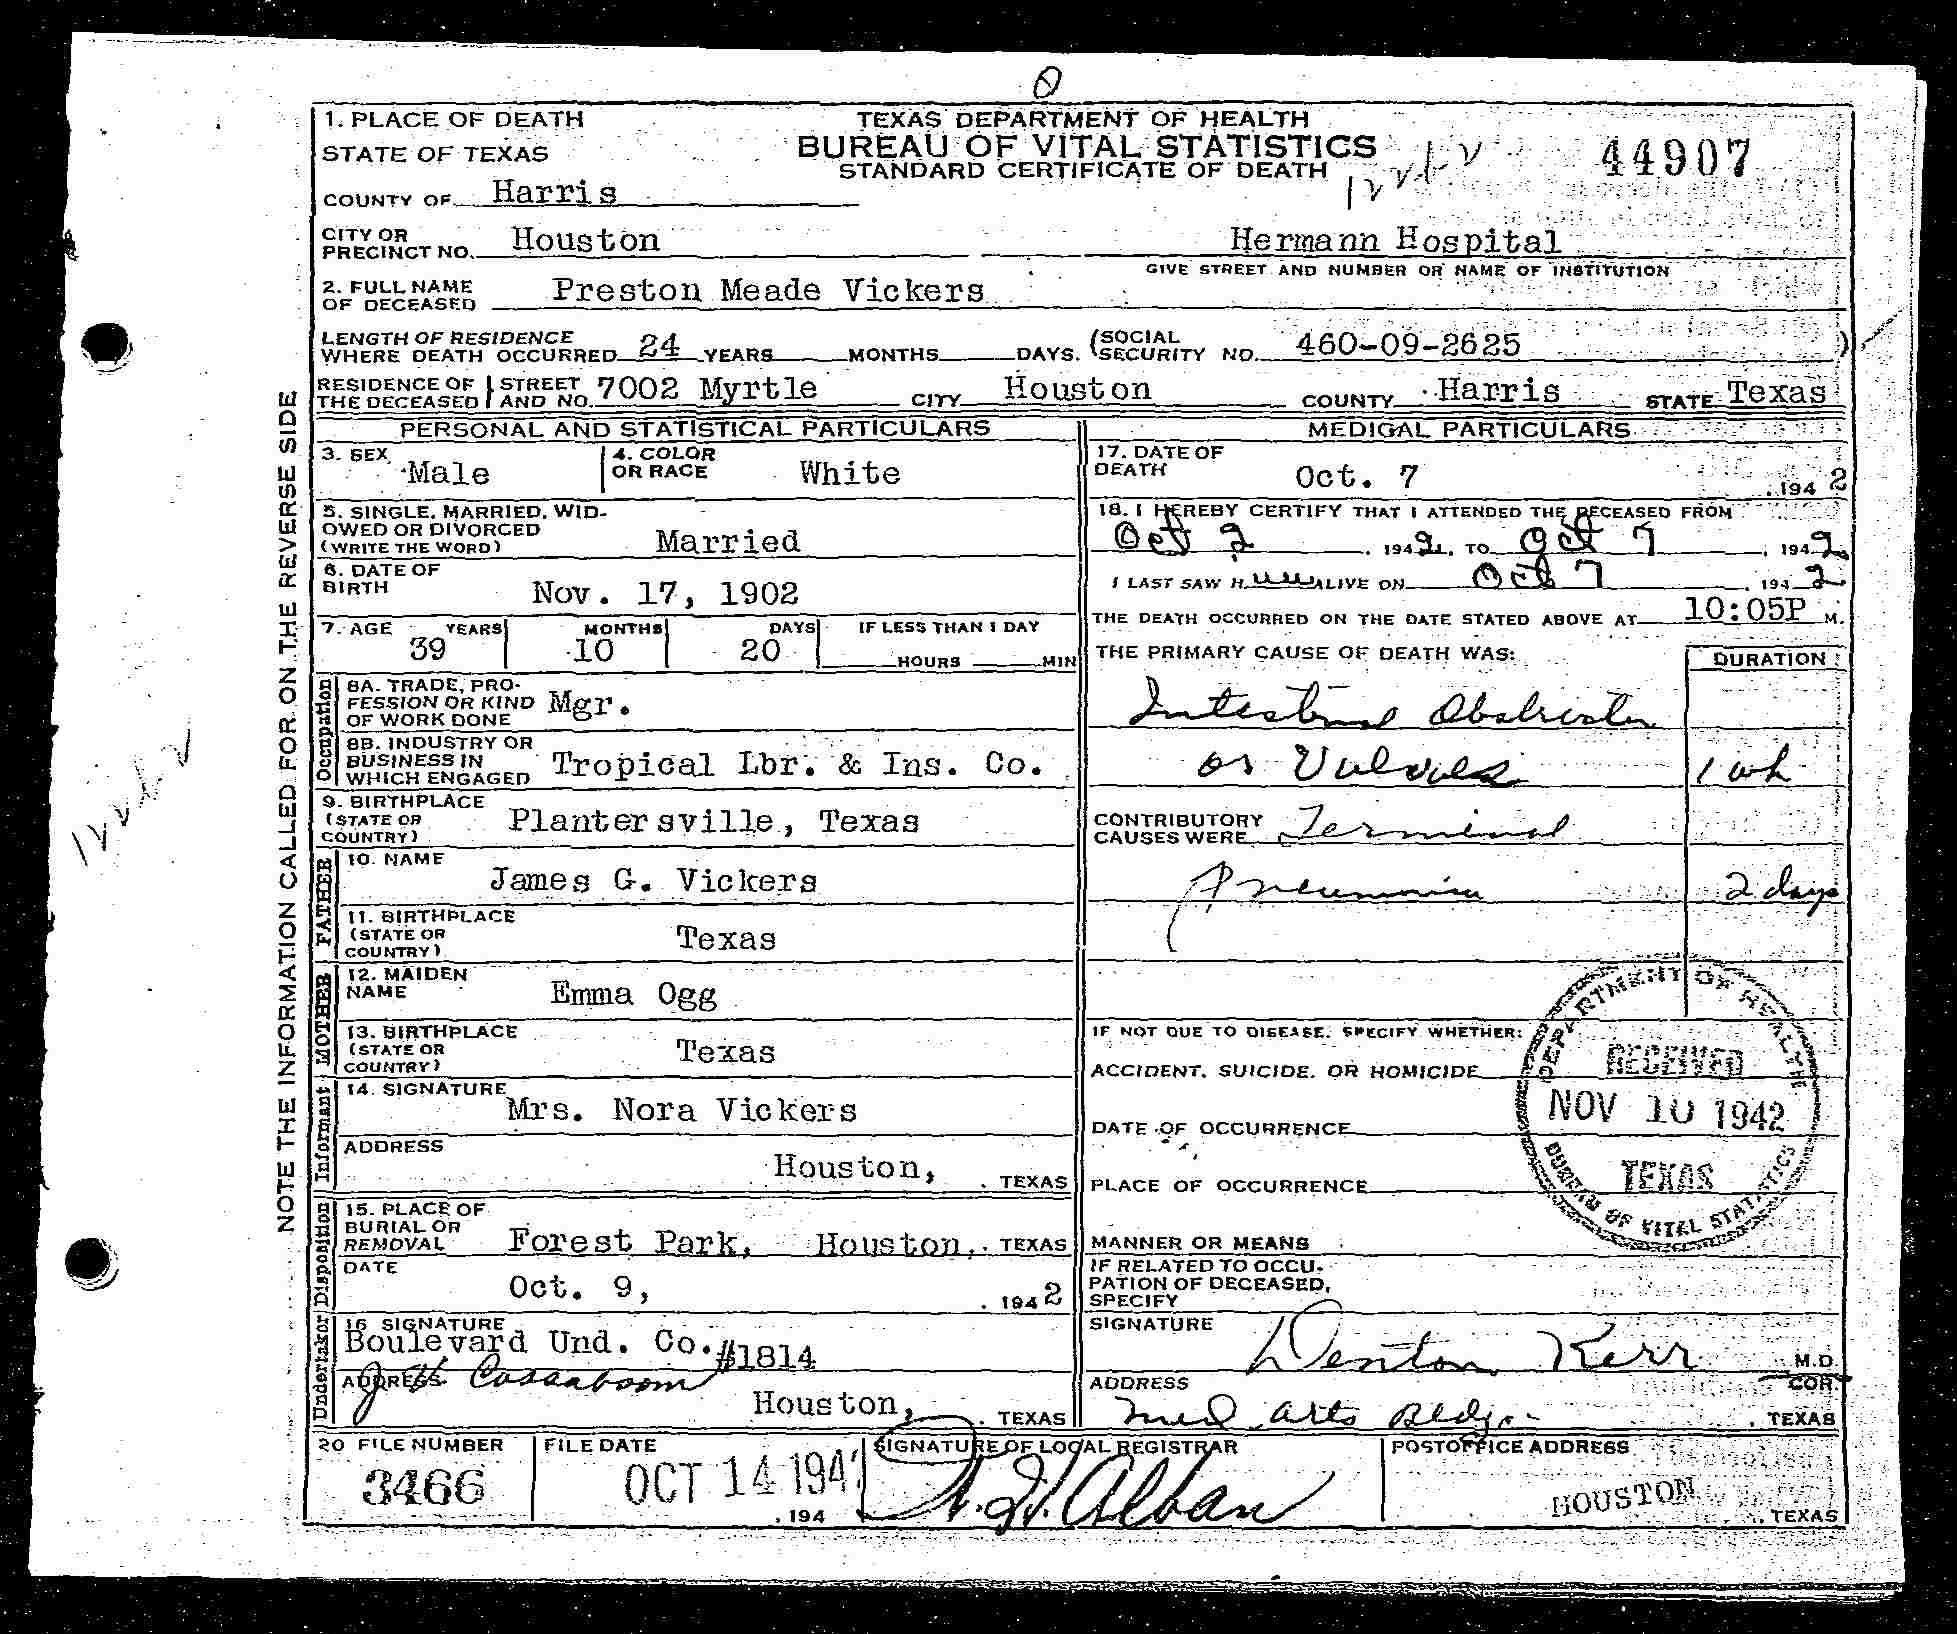 1. PLACE OF DEATH
STATE OF TEXAS
TEXAS DEPARTMENT OF HEALTH
BUREAU OF VITAL STATISTICS
STANDARD CERTIFICATE OF DEATH
44907
COUNTY OF Harris
CITY OR PRECINCT NO. Houston Hermann Hospital
GIVE STREET AND NUMBER OR NAME OF INSTITUTION
2. FULL NAME OF DECEASED Preston Meade Vickers
LENGTH OF RESIDENCE WHERE DEATH OCCURRED 24 YEARS MONTHS DAYS. (SOCIAL SECURITY NO. 460-09-2625 )
RESIDENCE OF THE DECEASED STREET AND NO. 7002 Myrtle CITY Houston COUNTY Harris STATE Texas
NOTE THE INFORMATION CALLED FOR ON THE REVERSE SIDE
PERSONAL AND STATISTICAL PARTICULARS
3. SEX Male 4. COLOR OR RACE White
5. SINGLE, MARRIED, WIDOWED OR DIVORCED (WRITE THE WORD) Married
6. DATE OF BIRTH Nov. 17, 1902
7. AGE YEARS MONTHS DAYS IF LESS THAN 1 DAY
39 10 20 HOURS MIN
Occupation
8A. TRADE, PROFESSION OR KIND OF WORK DONE Mgr.
8B. INDUSTRY OR BUSINESS IN WHICH ENGAGED Tropical Lbr. & Ins. Co.
9. BIRTHPLACE (STATE OR COUNTRY) Plantersville, Texas
FATHER
10. NAME James G. Vickers
11. BIRTHPLACE (STATE OR COUNTRY) Texas
MOTHER
12. MAIDEN NAME Emma Ogg
13. BIRTHPLACE (STATE OR COUNTRY) Texas
Informant
14. SIGNATURE Mrs. Nora Vickers
ADDRESS Houston, TEXAS
Disposition
15. PLACE OF BURIAL OR REMOVAL Forest Park, Houston, TEXAS
DATE Oct. 9, 1942
Undertaker
16 SIGNATURE Boulevard Und. Co. #1814
ADDRESS Houston, TEXAS
MEDICAL PARTICULARS
17. DATE OF DEATH Oct. 7 1942
18. I HEREBY CERTIFY THAT I ATTENDED THE DECEASED FROM
Oct 2 1942, TO Oct 7 1942
I LAST SAW H ALIVE ON Oct 7 1942
THE DEATH OCCURRED ON THE DATE STATED ABOVE AT 10:05P M.
THE PRIMARY CAUSE OF DEATH WAS: DURATION
Intestinal Obstruction
or 1 wk
CONTRIBUTORY CAUSES WERE Terminal
Pneumonia 2 days
IF NOT DUE TO DISEASE, SPECIFY WHETHER:
ACCIDENT, SUICIDE, OR HOMICIDE
DATE OF OCCURRENCE
PLACE OF OCCURRENCE
MANNER OR MEANS
IF RELATED TO OCCUPATION OF DECEASED, SPECIFY
DEPARTMENT OF HEALTH
RECEIVED
NOV 10 1942
TEXAS
BUREAU OF VITAL STATISTICS
SIGNATURE Denton Kerr M.D.
COR.
ADDRESS Med Arts Bldg. TEXAS
20 FILE NUMBER 3466
FILE DATE OCT 14 194
, 194
SIGNATURE OF LOCAL REGISTRAR
W. H. Alban
POSTOFFICE ADDRESS
HOUSTON, TEXAS